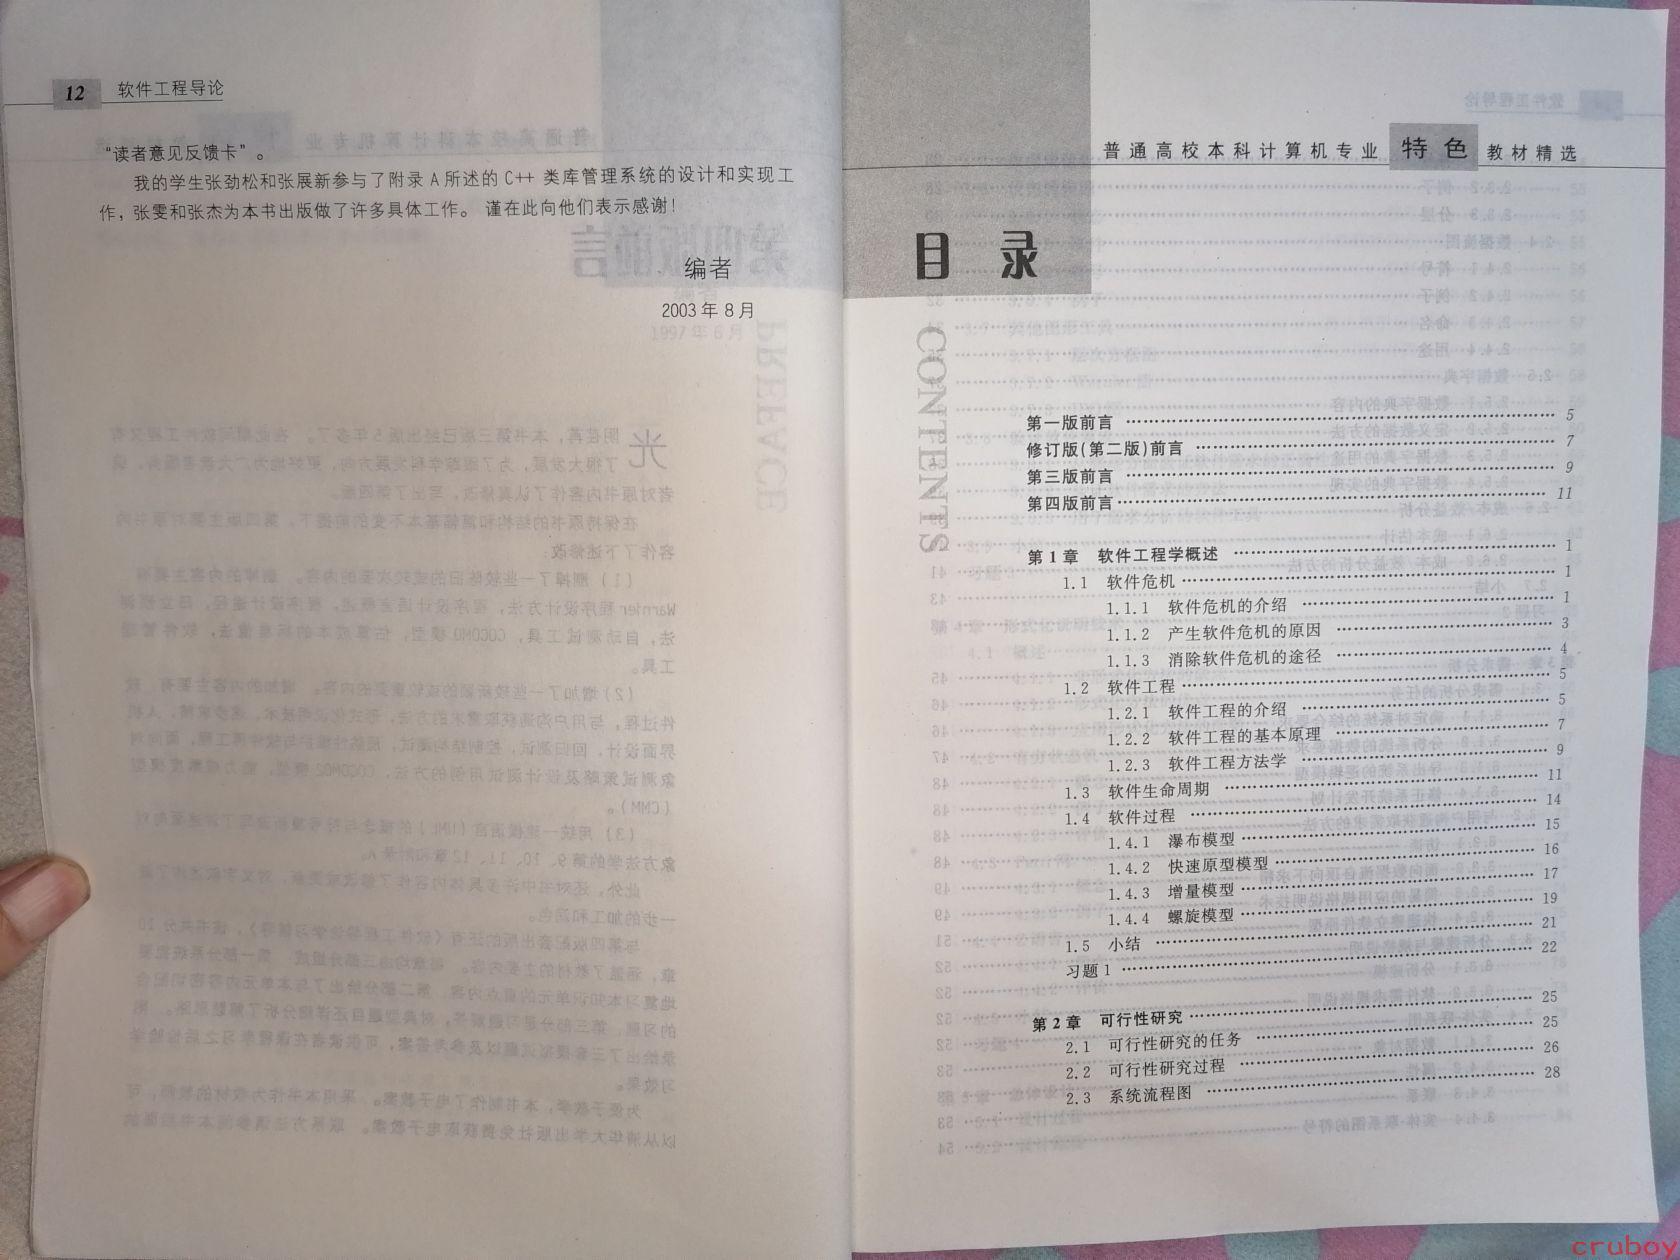 12 软件工程导论
“读者意见反馈卡”。
我的学生张劲松和张展新参与了附录 A 所述的 C++ 类库管理系统的设计和实现工
作，张雯和张杰为本书出版做了许多具体工作。 谨在此向他们表示感谢！
编者
2003 年 8 月
普通高校本科计算机专业 特色 教材精选
目 录
CONTENTS
第一版前言 …… 5
修订版(第二版)前言 …… 7
第三版前言 …… 9
第四版前言 …… 11
第 1 章 软件工程学概述 …… 1
1.1 软件危机 …… 1
1.1.1 软件危机的介绍 …… 1
1.1.2 产生软件危机的原因 …… 3
1.1.3 消除软件危机的途径 …… 4
1.2 软件工程 …… 5
1.2.1 软件工程的介绍 …… 5
1.2.2 软件工程的基本原理 …… 7
1.2.3 软件工程方法学 …… 9
1.3 软件生命周期 …… 11
1.4 软件过程 …… 14
1.4.1 瀑布模型 …… 15
1.4.2 快速原型模型 …… 16
1.4.3 增量模型 …… 17
1.4.4 螺旋模型 …… 19
1.5 小结 …… 21
习题 1 …… 22
第 2 章 可行性研究 …… 25
2.1 可行性研究的任务 …… 25
2.2 可行性研究过程 …… 26
2.3 系统流程图 …… 28
cruboy